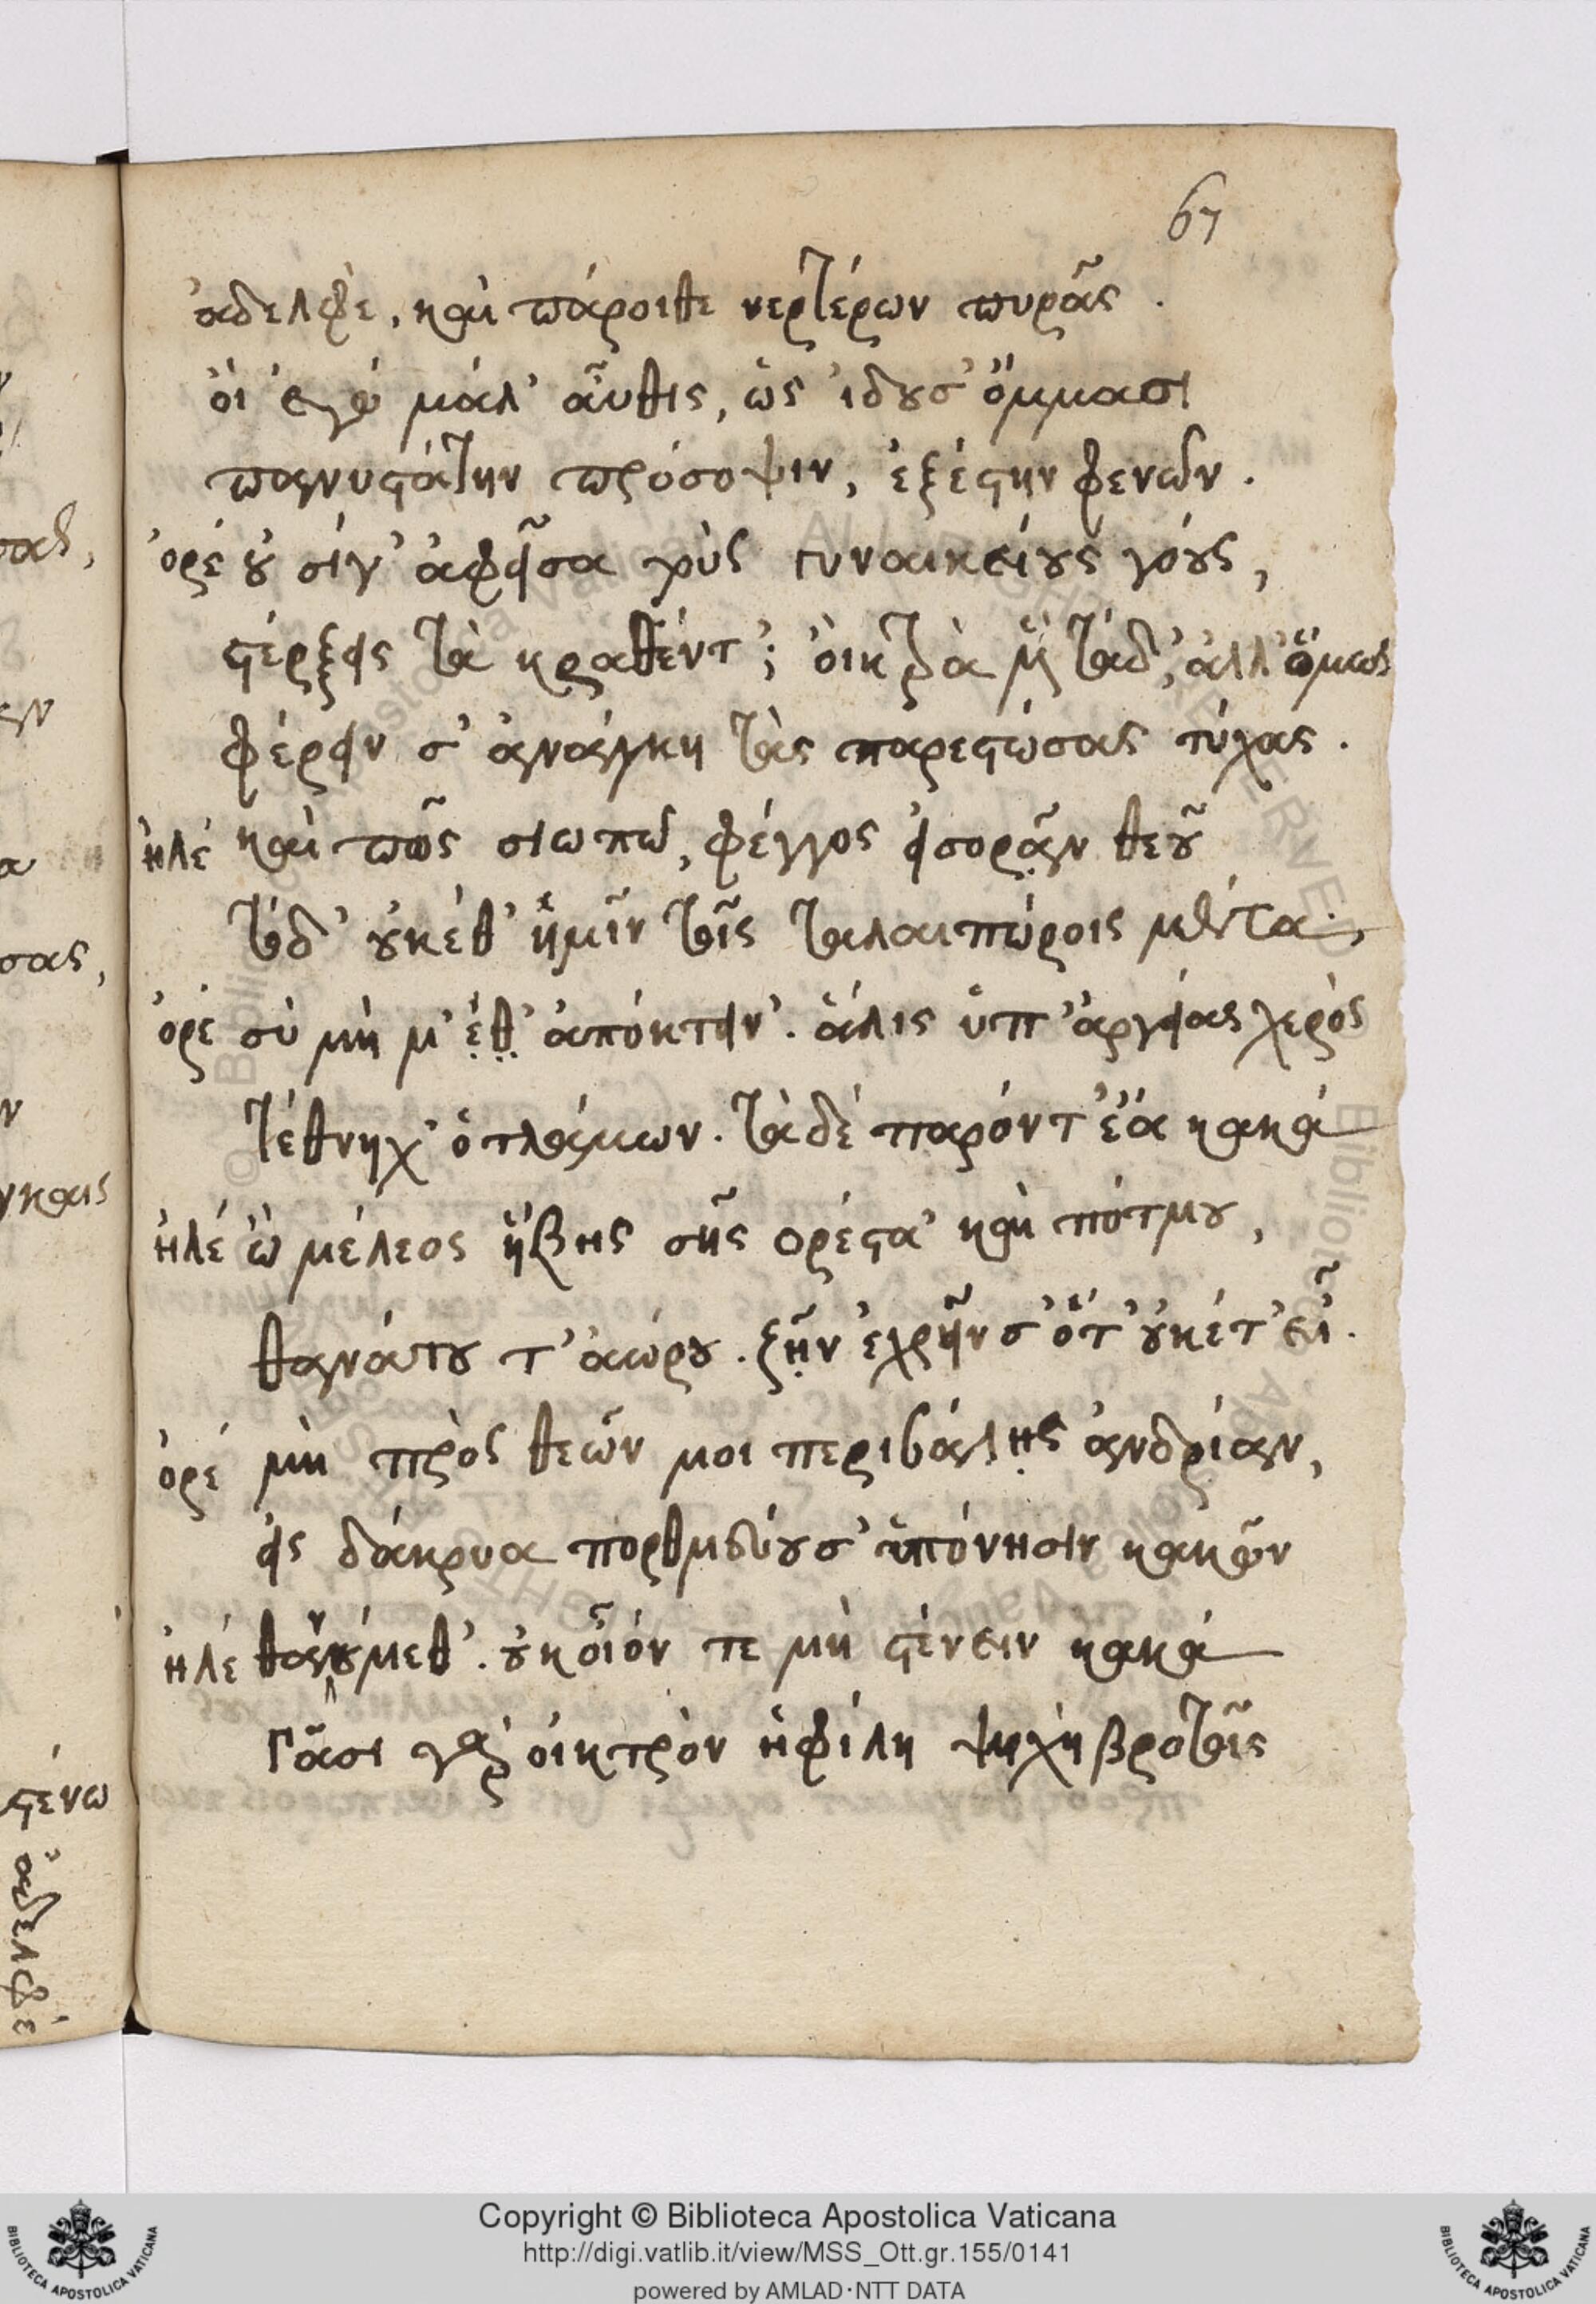 67
ἀδελφὲ, καὶ πάροιθε νερτέρων πυρᾶς.
ὀὶ ἐγὼ μάλ' αὖθις, ὡς ἰδοῦσ' ὄμμασι
πανυστάτην πρόσοψιν, ἐξέστην φενῶν.
ὀρέ οὐ σίγ' ἀφεῖσα γοὺς γυναικείους γόους,
στέρξεις τὰ κραθέντ'; οἰκτρὰ μὲν τάδ', ἀλλ' ὅμως
φέρειν σ' ἀνάγκη τὰς παρεστώσας τύχας.
ἠλέ καὶ πῶς σιωπῶ, φέγγος εἰσορᾷν θεοῦ
τόδ' οὐκέθ' ἡμῖν τοῖς ταλαιπώροις μέτα.
ὀρέ σὺ μή μ' ἔθ' ἀπόκτειν'. ἅλις ὑπ' ἀργείας χερὸς
τέθνηχ' ὁ τλάμων. τὰ δὲ παρόντ' ἔα κακά
ἠλέ ὢ μέλεος ἥβης σῆς ορέστα' καὶ πότμου,
θανάτου τ' ἀώρου. ζῇν ἐχρῆν σ' ὅτ' οὐκέτ' εἶ.
ὀρέ μὴ πρὸς θεῶν μοι περιβάλῃς ἀνδρίαν,
εἰς δάκρυα πορθμεύουσ' ὑπόνησιν κακῶν
ἠλέ θανούμεθ'. οὐκ οἷόν τε μὴ στένειν κακά
πᾶσι γὰρ οἰκτρὸν ἡ φίλη ψυχὴ βροτοῖς
στένω
ἀδελφὲ
Copyright © Biblioteca Apostolica Vaticana
http://digi.vatlib.it/view/MSS_Ott.gr.155/0141
powered by AMLAD·NTT DATA
BIBLIOTECA APOSTOLICA VATICANA
BIBLIOTECA APOSTOLICA VATICANA